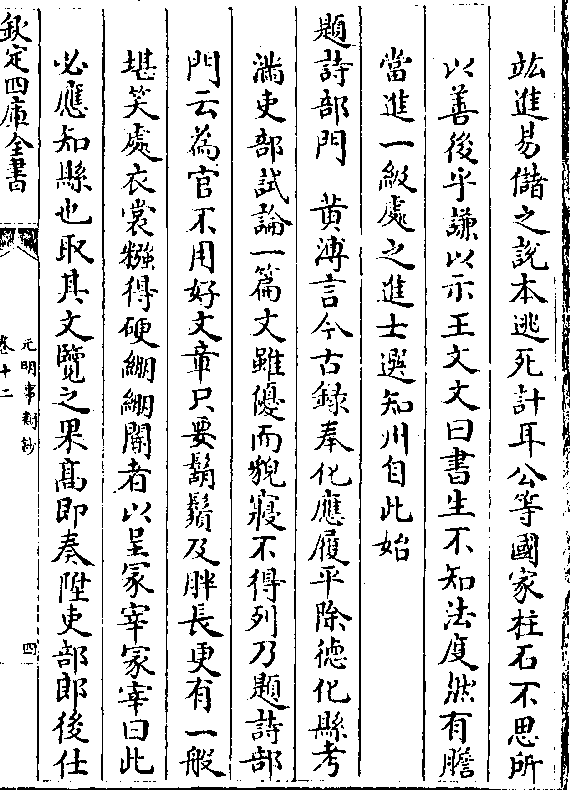 竑進易儲之說本逃死計耳公等國家柱石不思所
以善後乎謙以示王文文曰書生不知法度然有膽
當進一級處之進士選知州自此始
題詩部門　黃溥言今古録奉化應履平除德化縣考
滿吏部試論一篇文雖優而貌寢不得列乃題詩部
門云為官不用好文章只要鬍鬚及胖長更有一般
堪笑處衣裳糨得硬綳綳閽者以呈冢宰冢宰曰此
必應知縣也取其文覽之果髙即奏陞吏部郎後仕
欽定四庫全書
元明事類鈔
卷十二
四